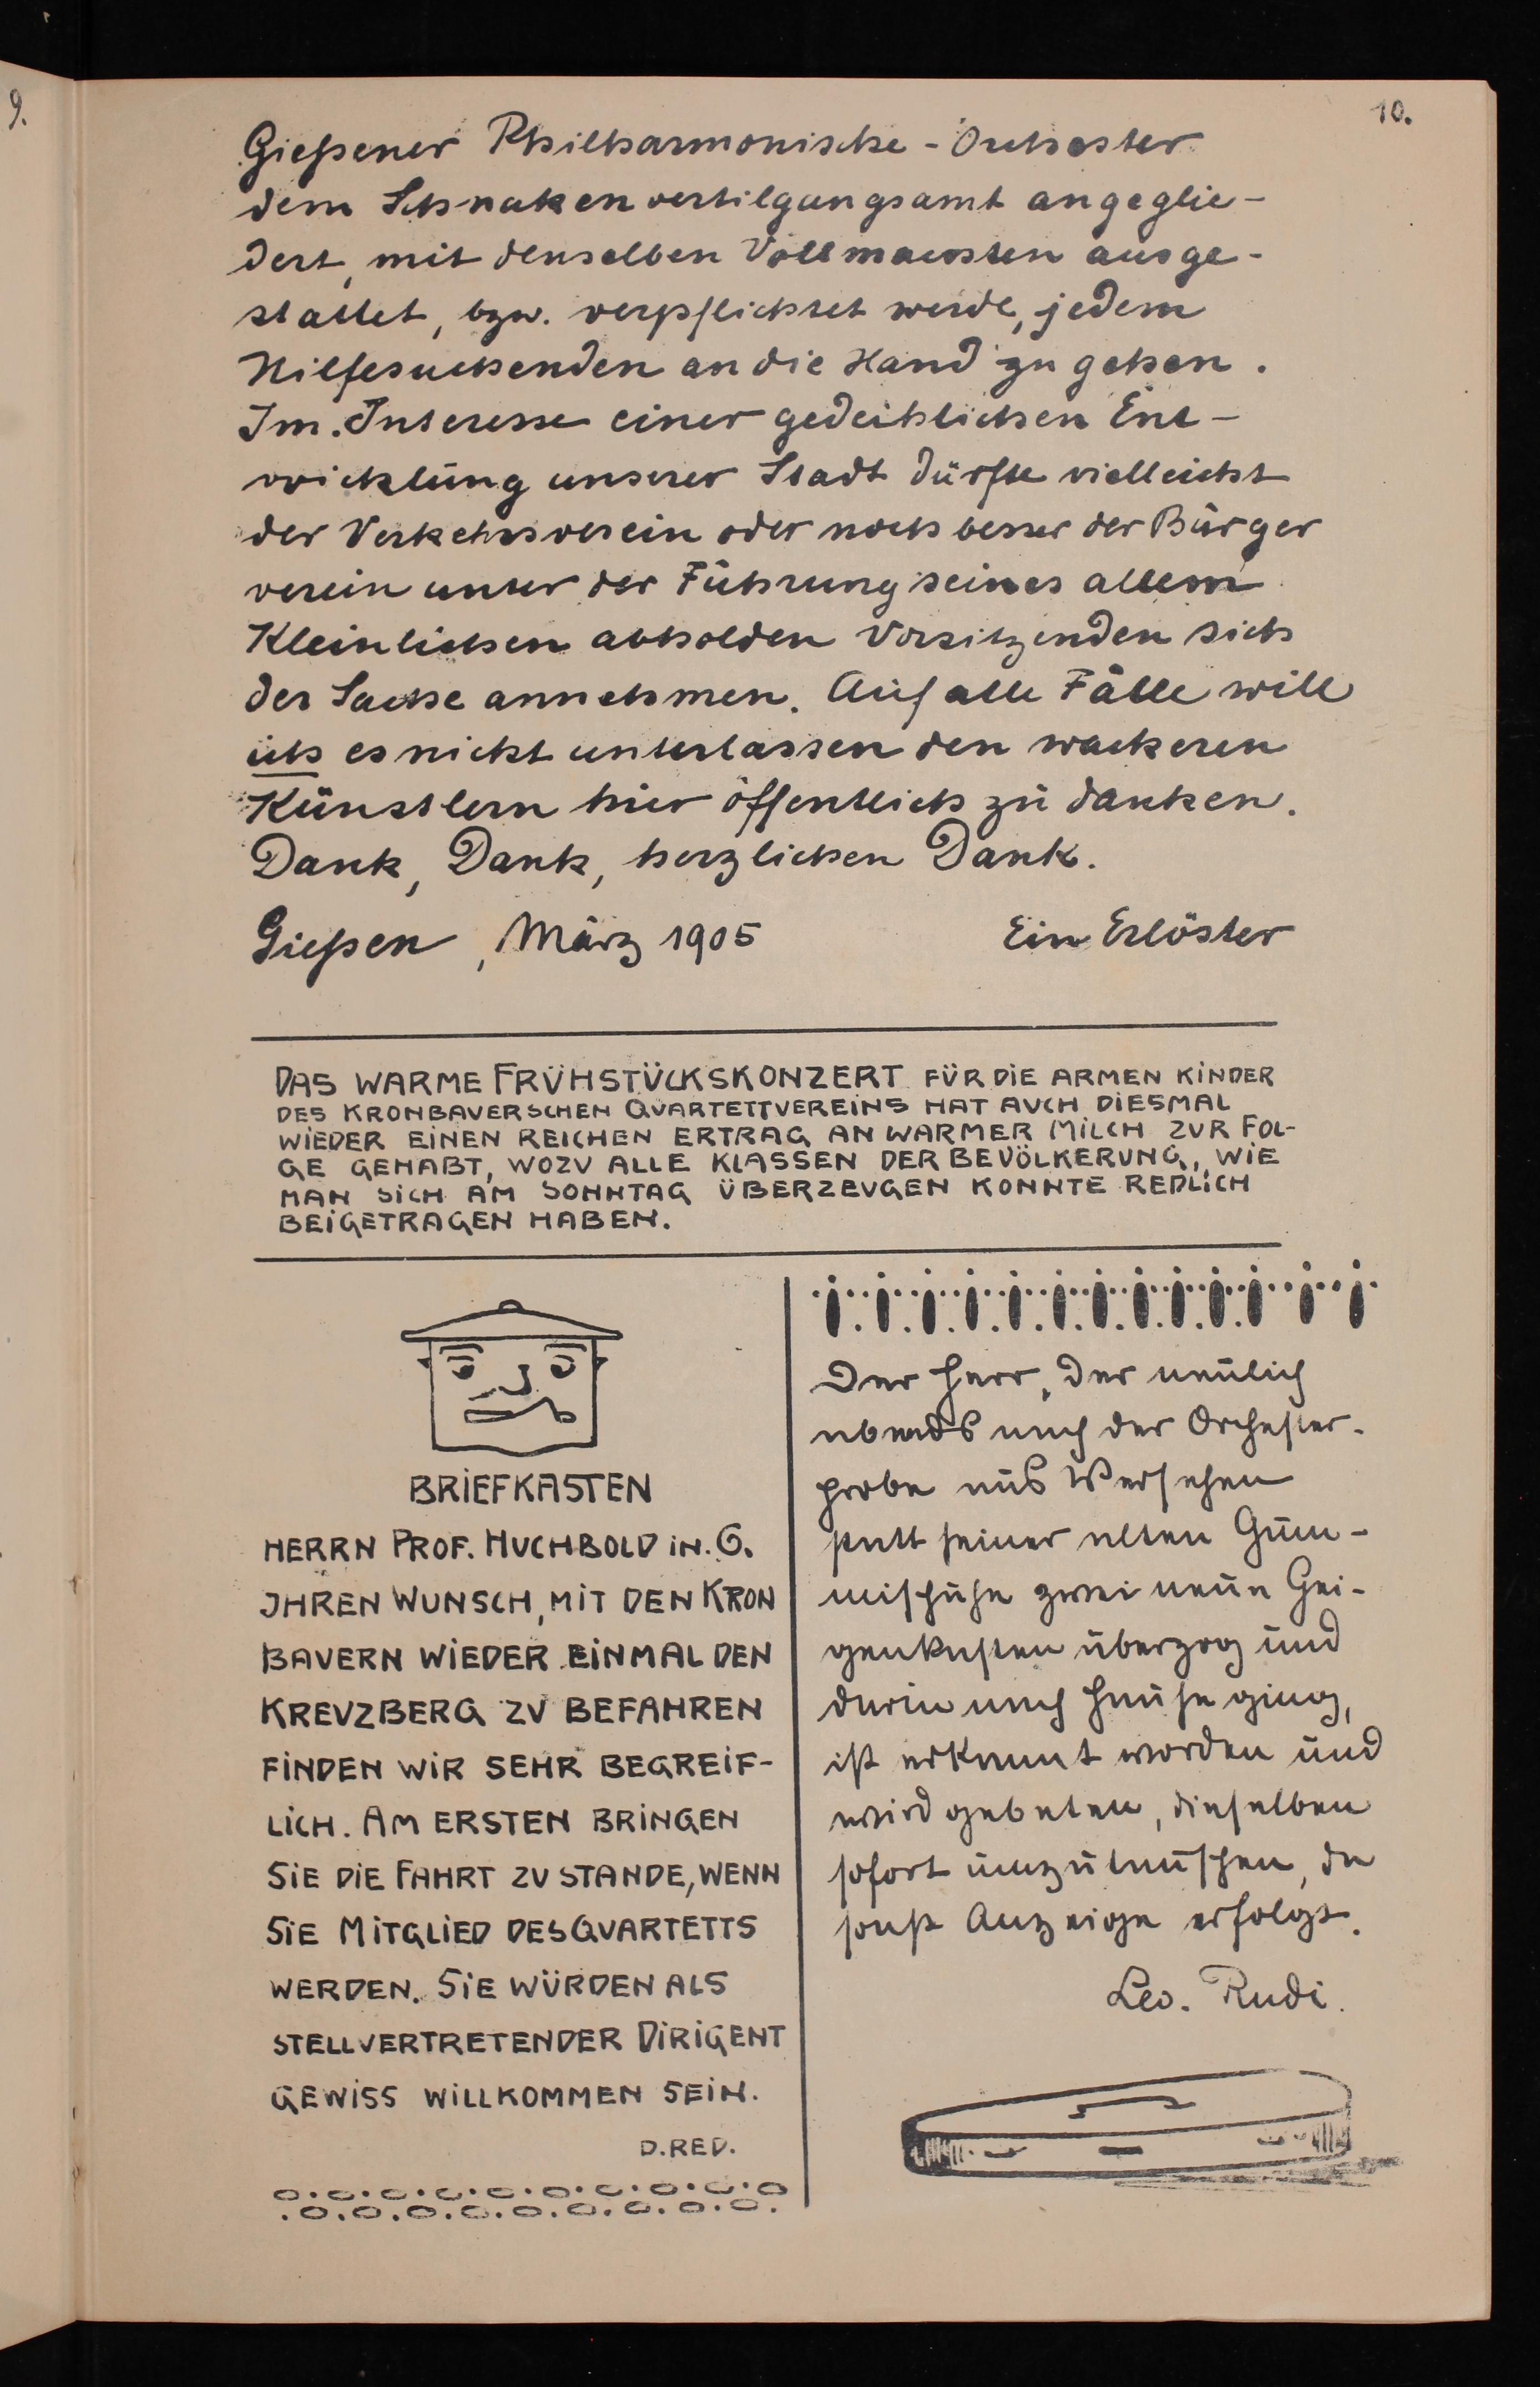 9.
10.
Gießener Philharmonische-Orchester
dem Schnakenvertilgungsamt angeglie-
dert, mit denselben Vollmachten ausge-
stattet, bzw. verpflichtet werde, jedem
Hilfesuchenden an die Hand zu gehen.
Im Interesse einer gedeihlichen Ent-
wicklung unserer Stadt dürfte vielleicht
der Verkehrsverein oder noch besser der Bürger
verein unter der Führung seines allem
Kleinlichen abholden Vorsitzenden sich
der Sache annehmen. Auf alle Fälle will
ich es nicht unterlassen den wackeren
Künstlern hier öffentlich zu danken.
Dank, Dank, herzlichen Dank.
Gießen, März 1905 Ein Erlöster
DAS WARME FRÜHSTÜCKSKONZERT FÜR DIE ARMEN KINDER
DES KRONBAVERSCHEN QVARTETTVEREINS HAT AVCH DIESMAL
WIEDER EINEN REICHEN ERTRAG AN WARMER MILCH ZVR FOL-
GE GEHABT, WOZV ALLE KLASSEN DER BEVÖLKERVNG, WIE
MAN SICH AM SONNTAG ÜBERZEVGEN KONNTE REDLICH
BEIGETRAGEN HABEN.
BRIEFKASTEN
HERRN PROF. HVCHBOLD IN. G.
IHREN WUNSCH, MIT DEN KRON
BAVERN WIEDER EINMAL DEN
KREVZBERG ZV BEFAHREN
FINDEN WIR SEHR BEGREIF-
LICH. AM ERSTEN BRINGEN
SIE DIE FAHRT ZV STANDE, WENN
SIE MITGLIED DES QVARTETTS
WERDEN. SIE WÜRDEN ALS
STELLVERTRETENDER DIRIGENT
GEWISS WILLKOMMEN SEIN.
D. RED.
Der Herr, der neulich
abends nach der Orchester-
probe aus Versehen
statt seiner alten Gum-
mischuhe zwei neue Gei-
genkasten überzog und
darin nach Hause ging,
ist erkannt worden und
wird gebeten, dieselben
sofort umzutauschen, da
sonst Anzeige erfolgt.
Leo. Rudi.